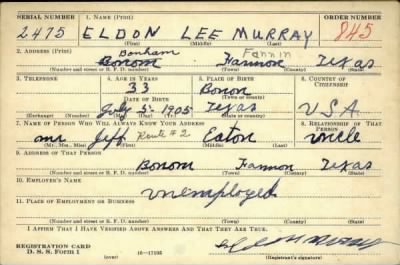 SERIAL NUMBER 1. NAME (Print) ORDER NUMBER
2475 ELDON LEE MURRAY 845
(First) (Middle) (Last)
2. ADDRESS (Print)
Bonham Fannin
Bonom Fannon Texas
(Number and street or R. F. D. number) (Town) (County) (State)
3. TELEPHONE 4. AGE IN YEARS 5. PLACE OF BIRTH 6. COUNTRY OF CITIZENSHIP
33 Bonon
DATE OF BIRTH (Town or county)
July 5- 1905 Texas U.S.A.
(Exchange) (Number) (Mo.) (Day) (Yr.) (State or country)
7. NAME OF PERSON WHO WILL ALWAYS KNOW YOUR ADDRESS 8. RELATIONSHIP OF THAT PERSON
mr Jeff Route #2 Eaton uncle
(Mr., Mrs., Miss) (First) (Middle) (Last)
9. ADDRESS OF THAT PERSON
Bonom Fannon Texas
(Number and street or R. F. D. number) (Town) (County) (State)
10. EMPLOYER'S NAME
unemployed
11. PLACE OF EMPLOYMENT OR BUSINESS
(Number and street or R. F. D. number) (Town) (County) (State)
I AFFIRM THAT I HAVE VERIFIED ABOVE ANSWERS AND THAT THEY ARE TRUE.
REGISTRATION CARD
D. S. S. Form 1 (over) 16-17105
(Registrant's signature)